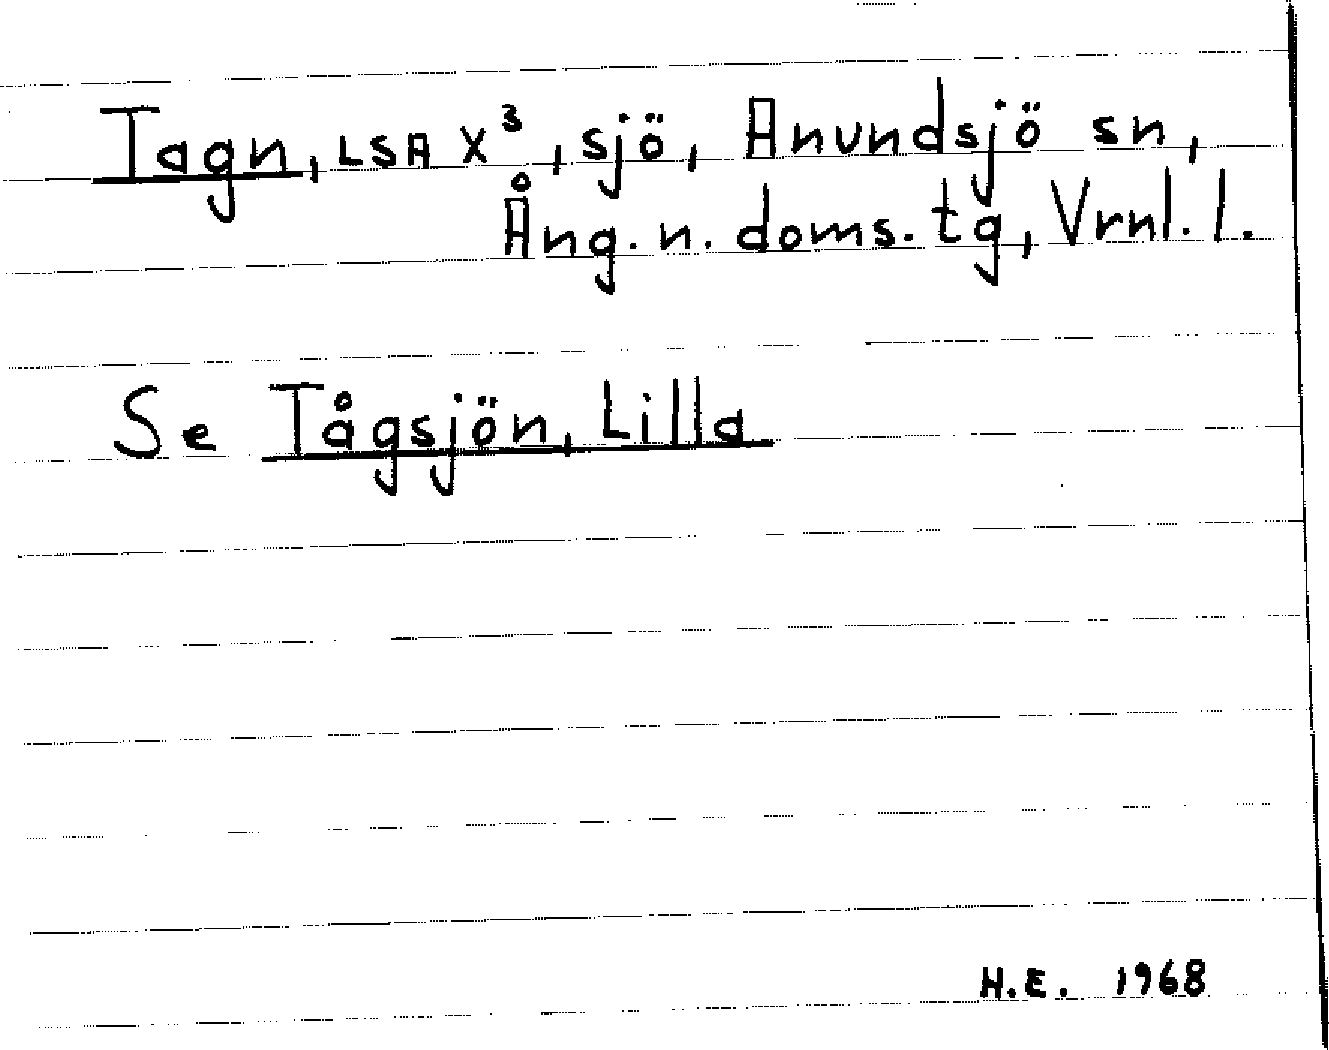 Tagn, LSA X³, sjö, Anundsjö sn,
Ång. n. doms. tg, Vrnl. l.
Se Tågsjön, Lilla
H.E. 1968